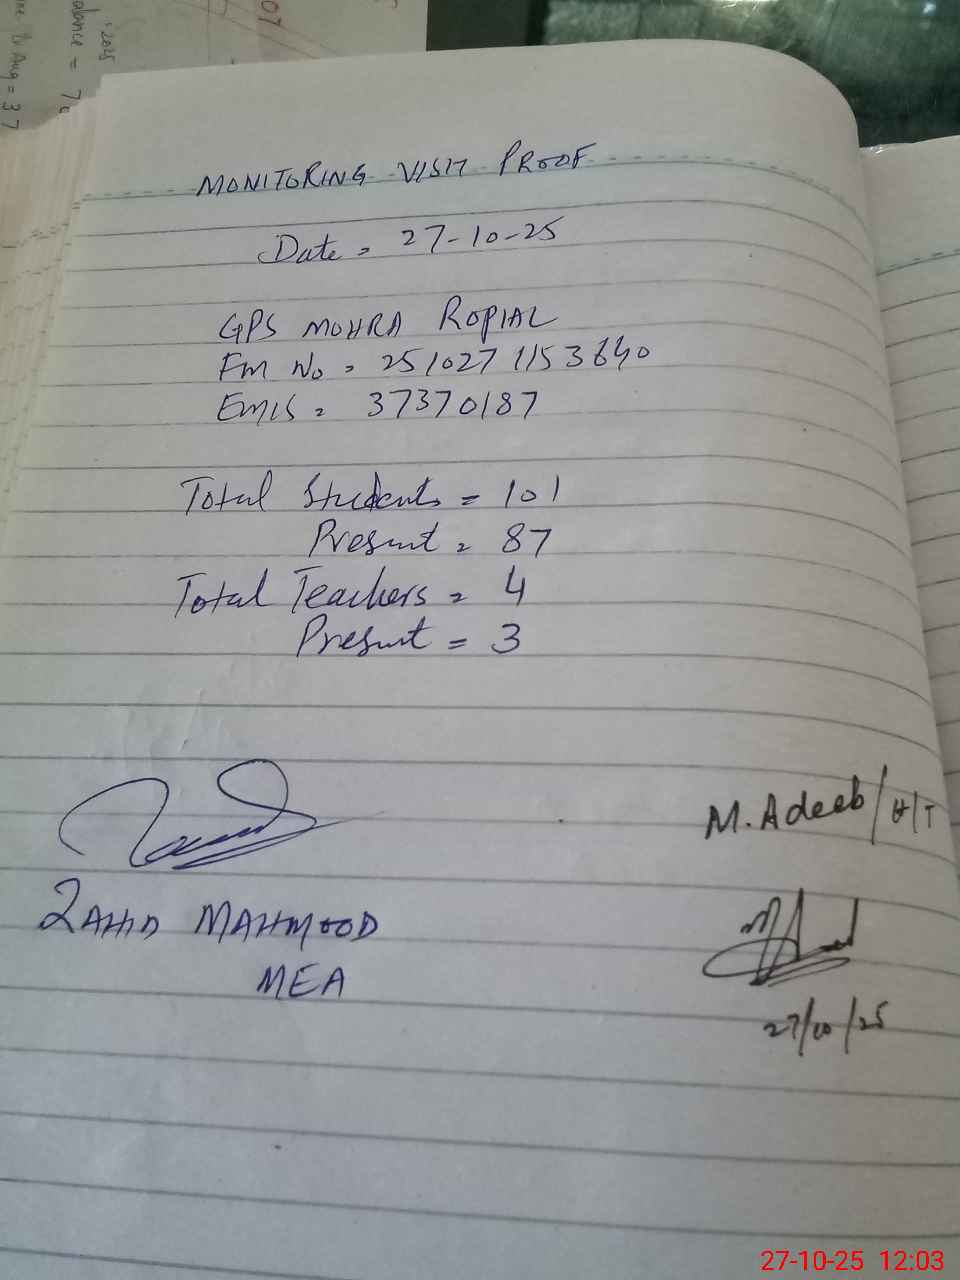 MONITORING VISIT PROOF
Date = 27-10-25
GPS MOHRA ROPIAL
FM No = 251027 1153640
EMIS = 37370187
Total Students = 101
Present = 87
Total Teachers = 4
Present = 3
M. Adeeb/H/T
ZAHID MAHMOOD
MEA
27/10/25
27-10-25 12:03